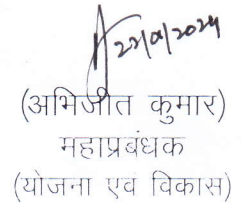 22/01/2024
(अभिजीत कुमार)
महाप्रबंधक
(योजना एवं विकास)